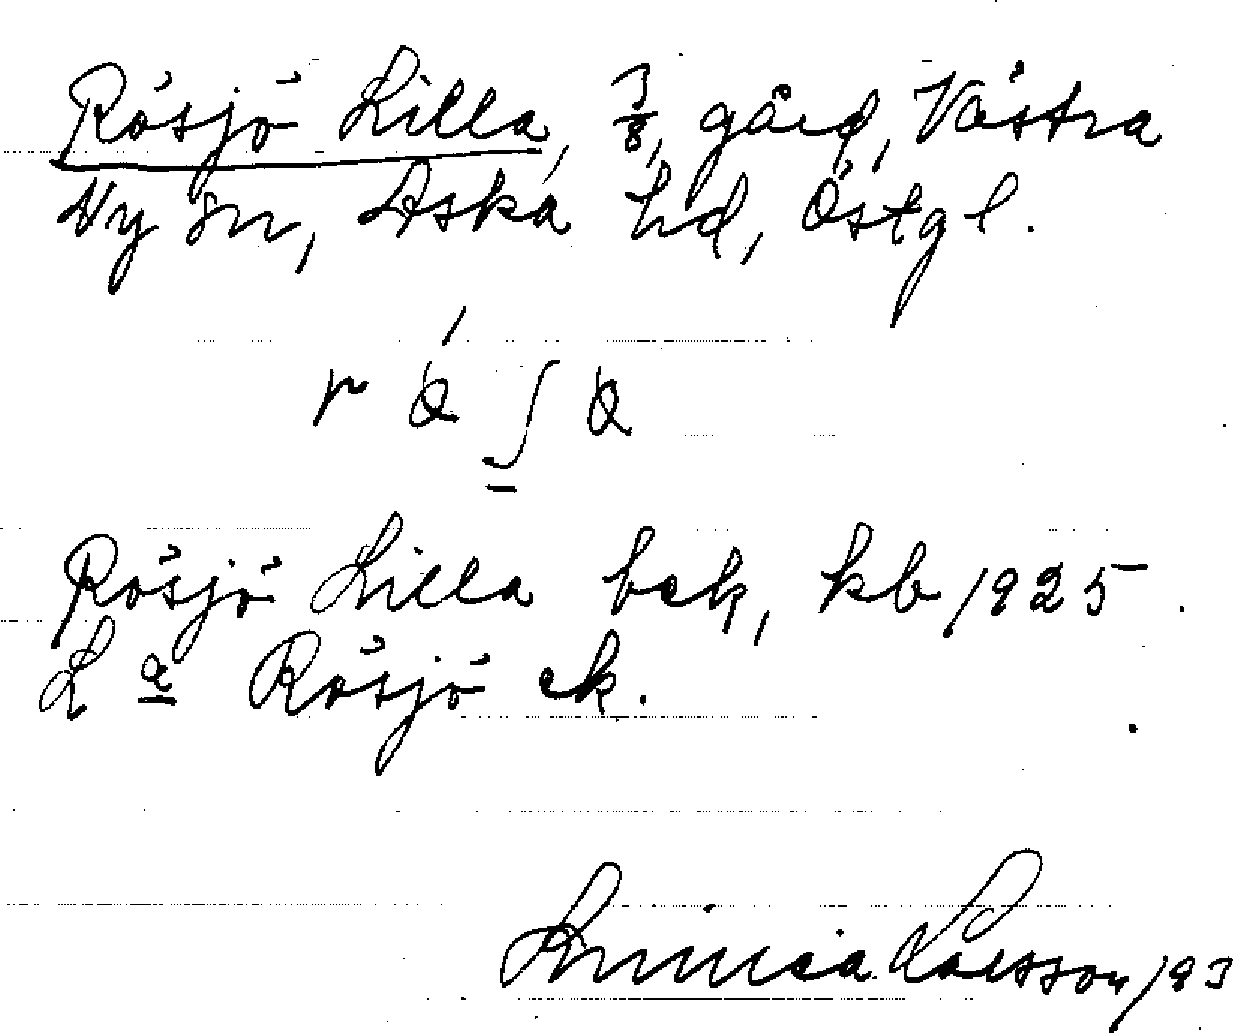 Rösjö Lilla, 7/8 gård, Västra
Ny sn, Aska hd, Östgl.
Rösjö Lilla bek, kb 1925.
L a Rösjö ek.
Linnéa Larsson 193